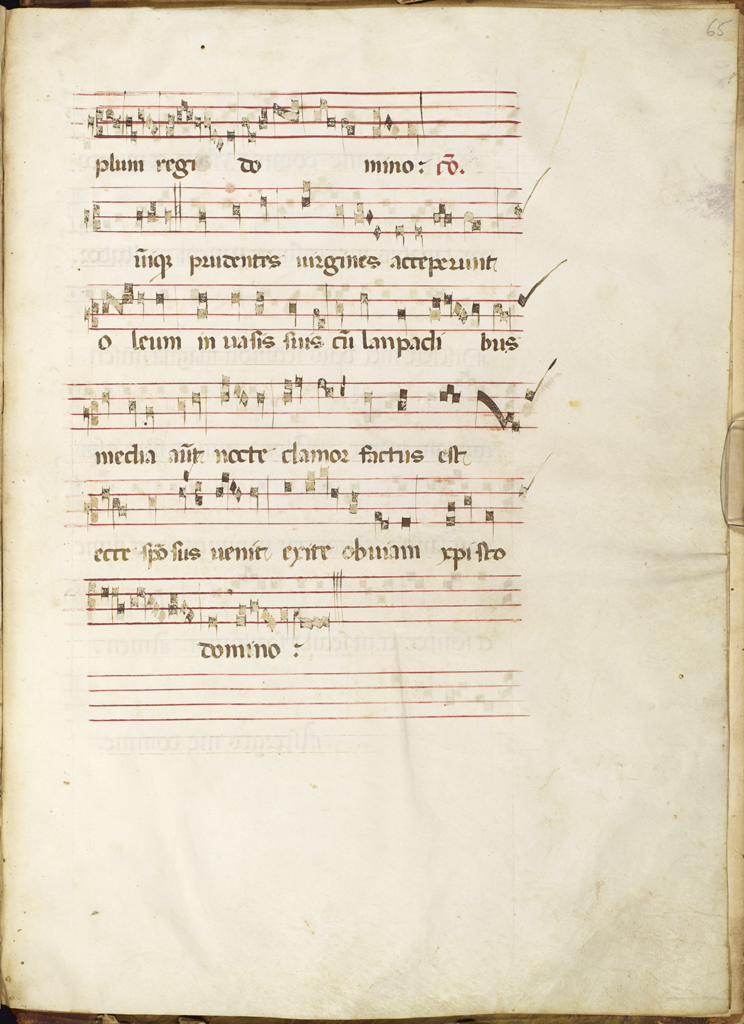 65
plum regi do mino : cō.
uīqꝫ prudentes uirgines acceperunt
o leum in uasis suis cū lanpadi bus
media aūt nocte clamor factus est
ecce spō sus uenit exite obuiam xpi sto
domino :